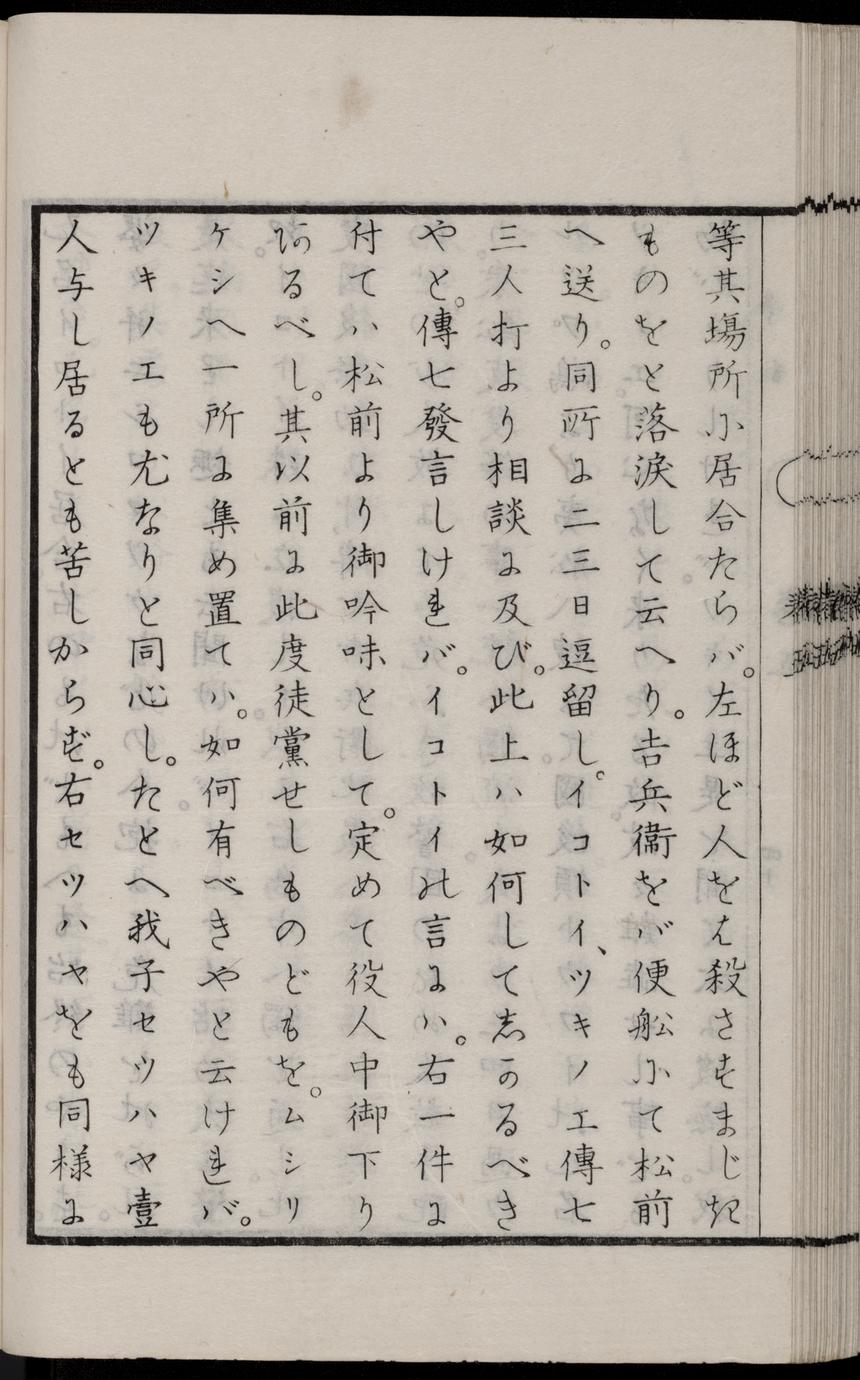 等其塲所小居合たらバ。左ほど人をば殺さすまじ記
ものをと落淚して云へり。吉兵衞をバ便舩小て松前
へ送り。同所に二三日逗留し。イコトイ、ツキノエ傳七
三人打より相談に及び。此上ハ如何して志かるべき
やと。傳七發言しけれバ。イコトイ此言にハ。右一件に
付てハ松前より御吟味として。定めて役人中御下り
阿るべし。其以前に此度徒黨せしものどもを。ムシリ
ケシへ一所に集め置てハ。如何有べきやと云けれバ。
ツキノエも尤なりと同心し。たとへ我子セツハヤ壹
人与し居るとも苦しからず。右セツハヤをも同様に